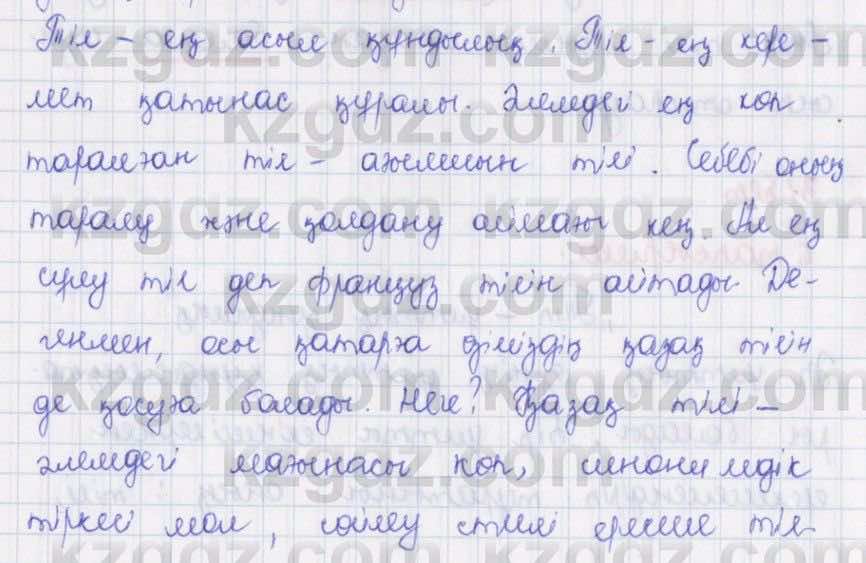 Тіл – ең асыл құндылық. Тіл – ең кере-
мет қатынас құралы. Әлемдегі ең көп
таралған тіл – ағылшын тілі. Себебі оның
таралу және қолдану аймағы кең. Ал ең
сұлу тіл деп француз тілін айтады. Де-
генмен, осы қатарға біздің қазақ тілін
де қосуға болады. Неге? Қазақ тілі –
әлемдегі мағынасы көп, синонимдік
тіркесі мол, сөйлеу стилі ерекше тіл
kzgdz.com